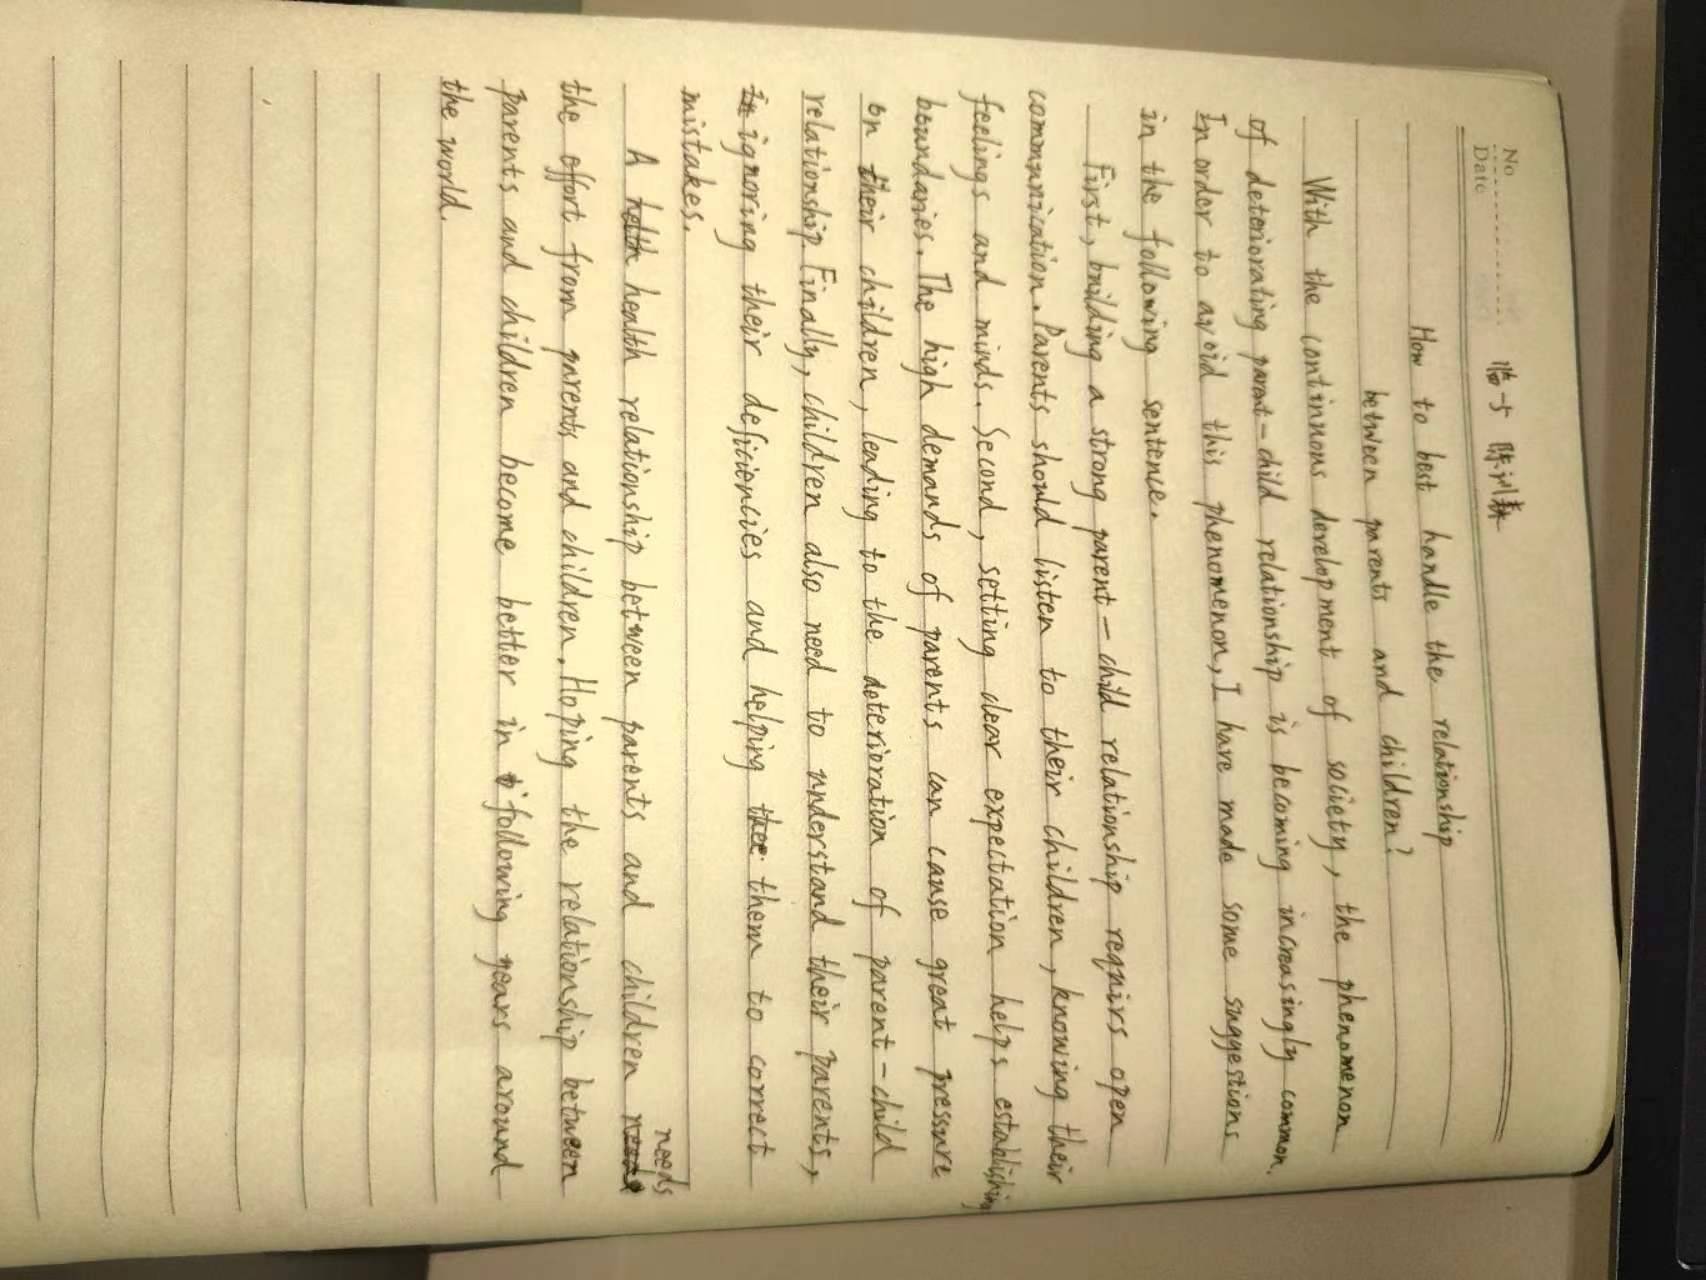 No
Date
临 5
How to best handle the relationship
between parents and children?
With the continuous development of society, the phenomenon
of deteriorating parent-child relationship is becoming increasingly common.
In order to avoid this phenomenon, I have made some suggestions
in the following sentence.
First, building a strong parent-child relationship requirs open
communication. Parents should listen to their children, knowing their
feelings and minds. Second, setting clear expectation helps establishing
boundaries. The high demands of parents can cause great pressure
on their children, leading to the deterioration of parent-child
relationship. Finally, children also need to understand their parents,
ignoring their deficiencies and helping them to correct
mistakes.
A health relationship between parents and children needs
the effort from parents and children. Hoping the relationship between
parents and children become better in following years around
the world.